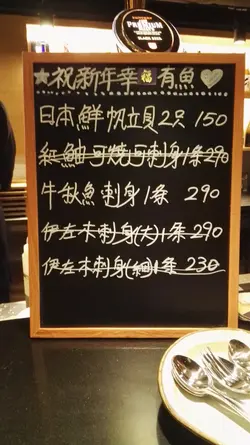 PREMIUM
★祝新年幸福有魚♡
日本鮮帆立貝2只 150
紅鮋可燒可刺身1條290
牛秋魚刺身1条 290
伊左木刺身(大)1条290
伊左木刺身(細)1条 230